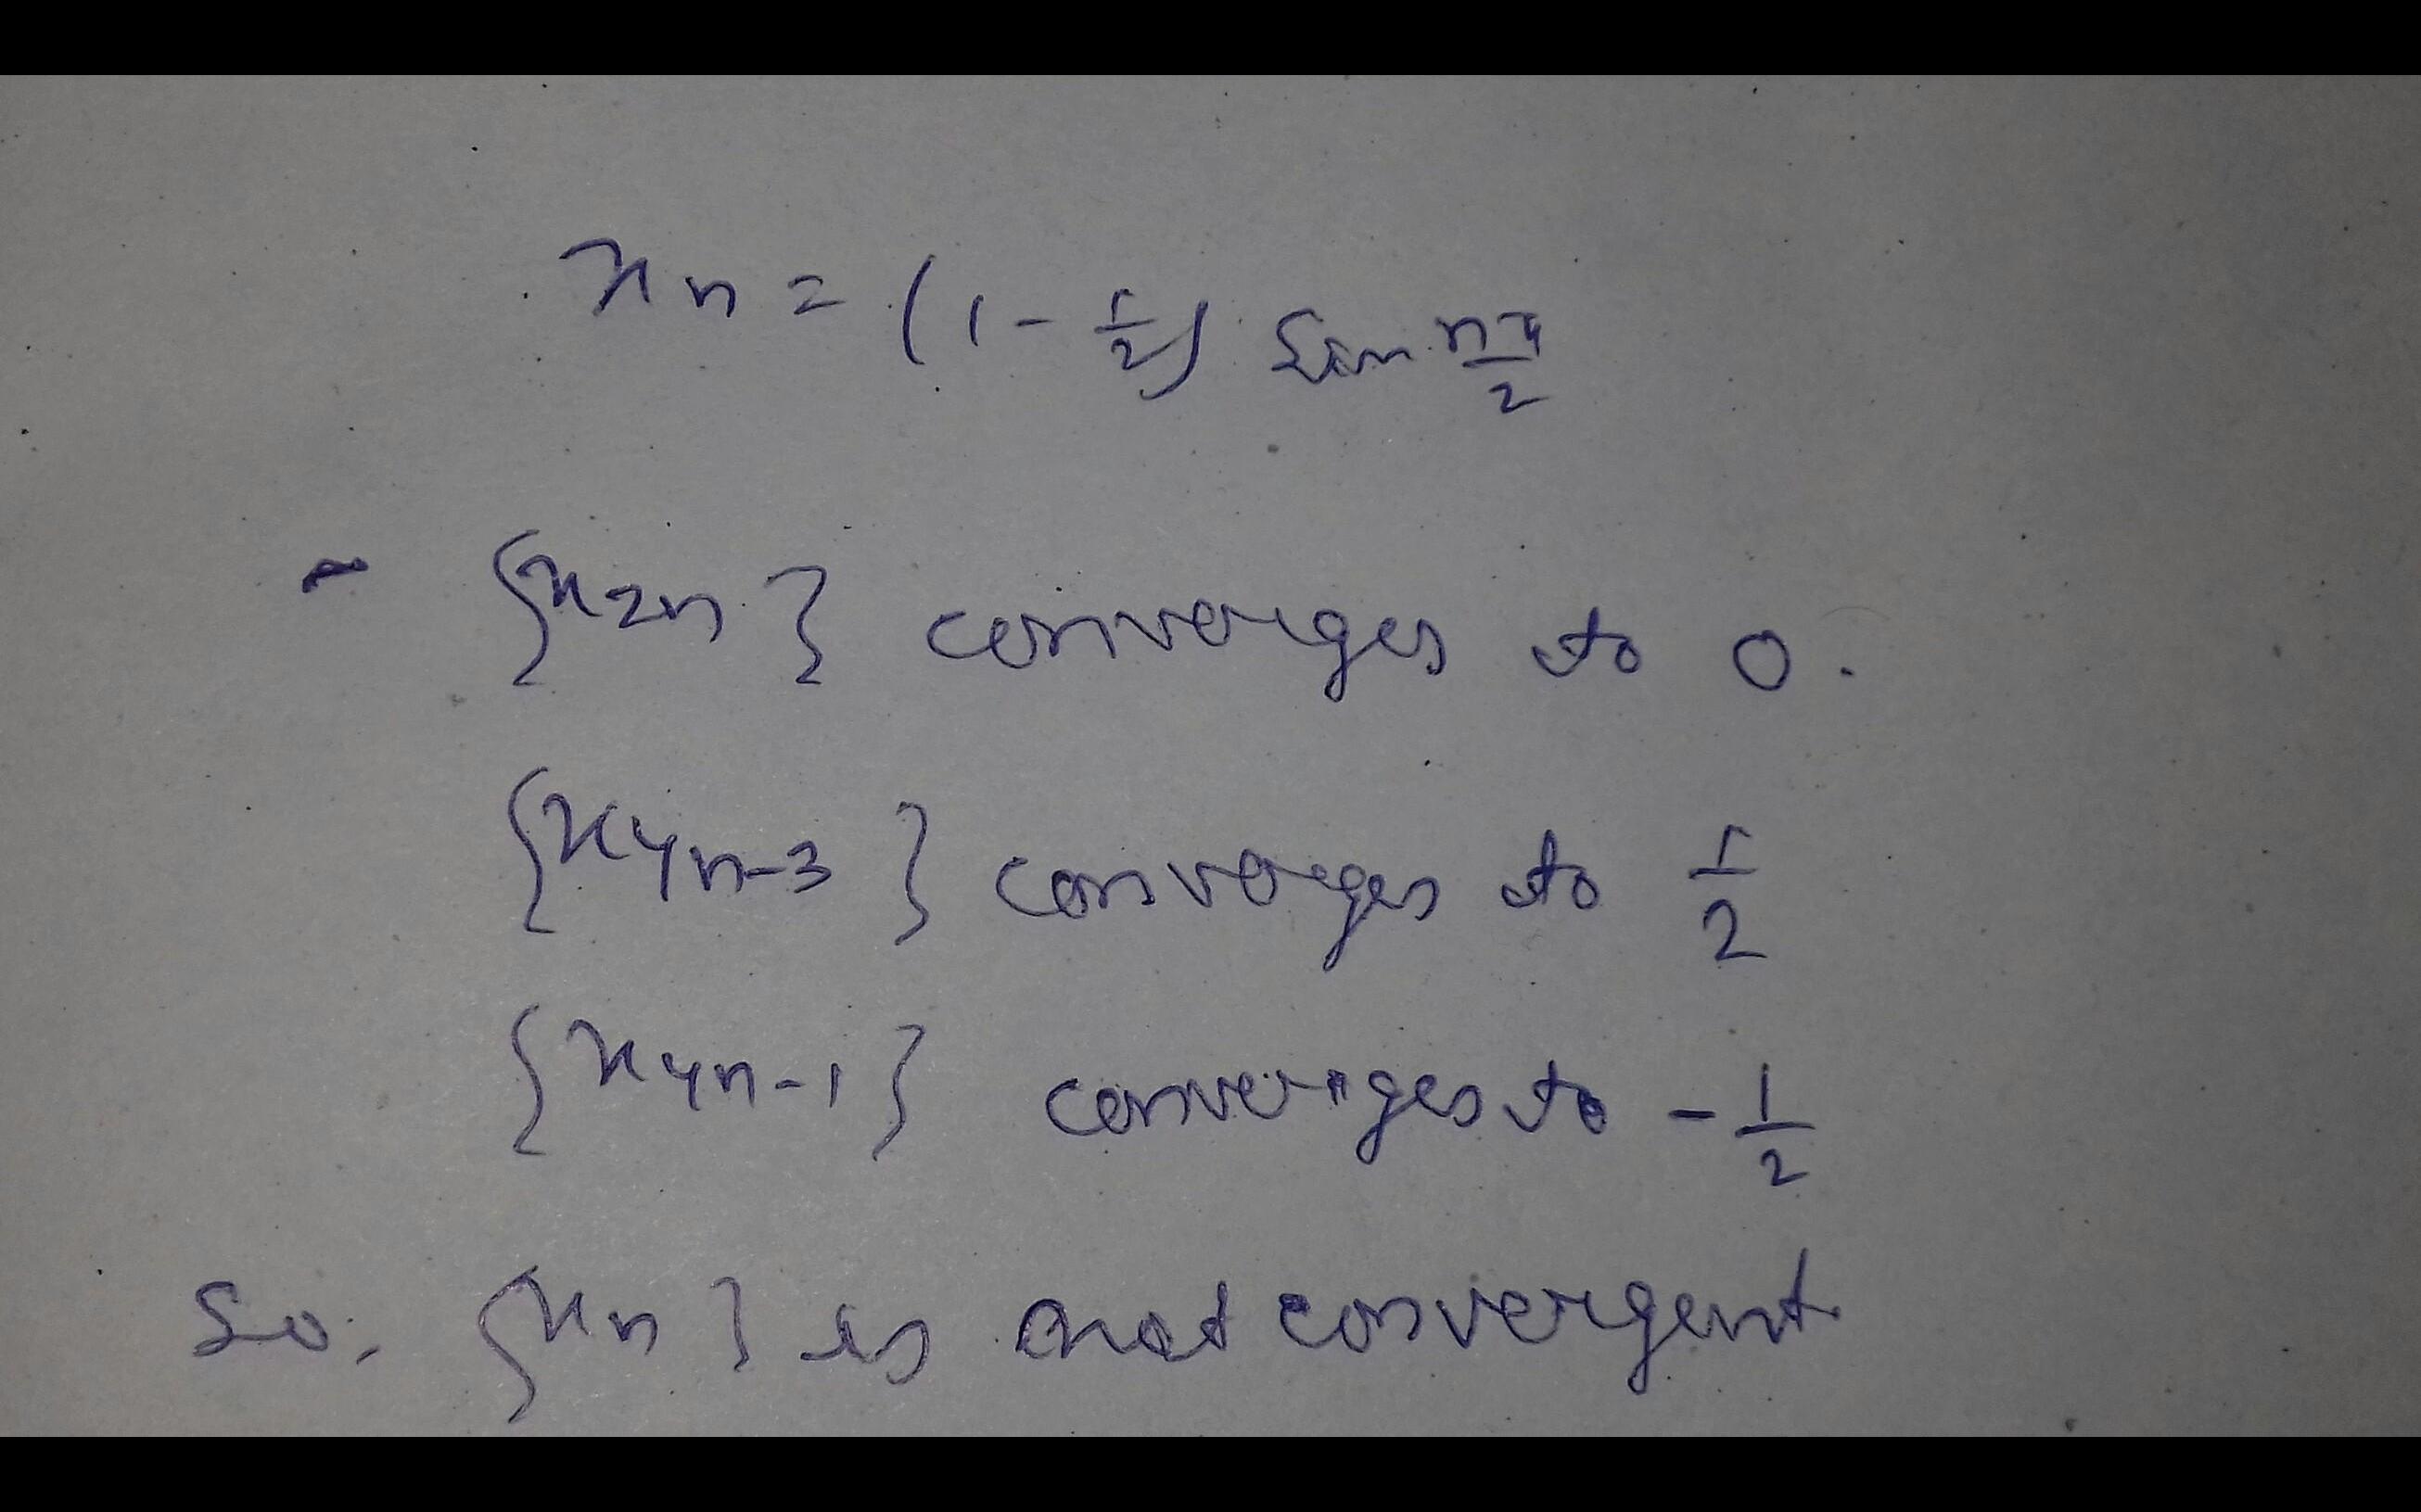 xn = (1 - 1/2) Sin nπ/2
- {x2n} converges to 0.
{x4n-3} converges to 1/2
{x4n-1} converges to - 1/2
So, {xn} is not convergent.